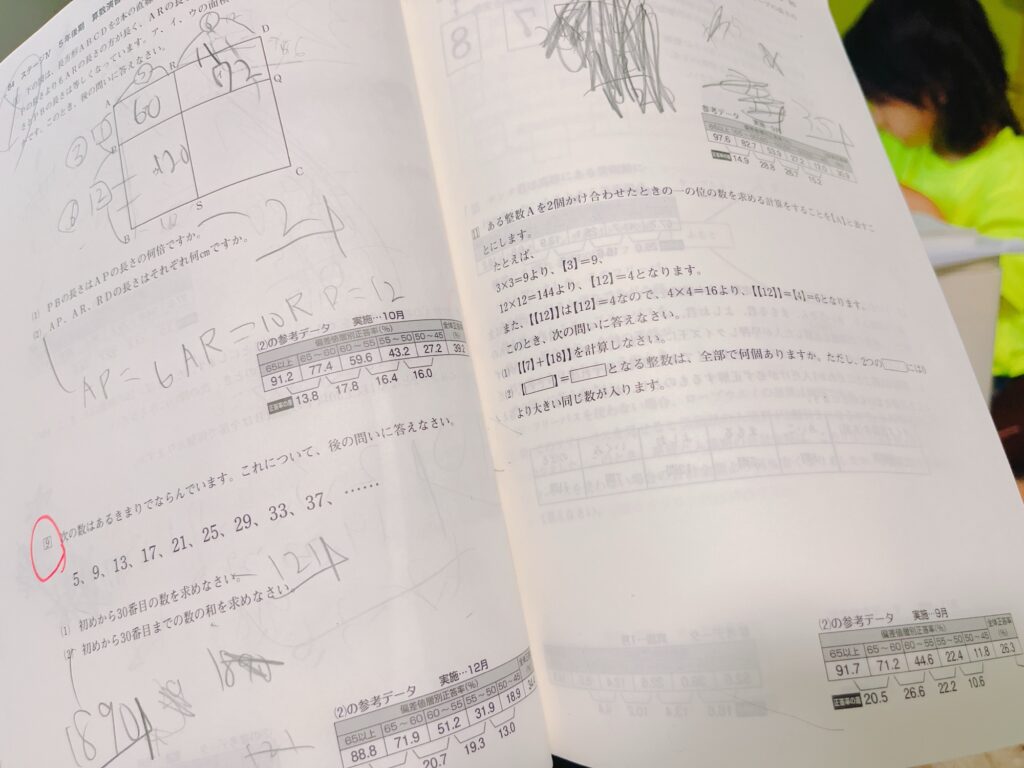 5年後期 算数演習
下の図は、長方形ABCDを2本の直線
の長さよりもARの長さの方が長く、ARの長
さとPBの長さは等しくなっています。ア、イ、ウの面積
です。このとき、後の問いに答えなさい。
D
R
1
72
Q
A
60
120
C
S
B
2
(1) PBの長さはAPの長さの何倍ですか。
(2) AP、AR、RDの長さはそれぞれ何cmですか。
AP=6 AR=10 RD=12
(2)の参考データ 実施…10月
偏差値層別正答率(%)
65以上 65〜60 60〜55 55〜50 50〜45
91.2 77.4 59.6 43.2 27.2 39.2
正答率の差 13.8 17.8 16.4 16.0
9 次の数はあるきまりでならんでいます。これについて、後の問いに答えなさい。
5、9、13、17、21、25、29、33、37、……
(1) 初めから30番目の数を求めなさい。
121
初めから30番目までの数の和を求めなさい。
1890
(2)の参考データ 実施…12月
偏差値層別正答率(%)
65以上 65〜60 60〜55 55〜50 50〜45
88.8 71.9 51.2 31.9 18.9
20.7 19.3 13.0
8 7
(2)の参考データ
65以上
97.6 82.7
正答率の差 14.9 28.8
11 ある整数Aを2個かけ合わせたときの一の位の数を求める計算をすることを【A】と表すこ
とにします。
たとえば、
3×3=9より、【3】=9、
12×12=144より、【12】=4となります。
また、【【12】】は【12】=4なので、4×4=16より、【【12】】=【4】=6となります。
このとき、次の問いに答えなさい。
(1) 【【7】+【18】】を計算しなさい。
(2) 【□】=□となる整数は、全部で何個ありますか。ただし、2つの□には
より大きい同じ数が入ります。
(2)の参考データ 実施…9月
偏差値層別正答率(%) 全体正答率
65以上 65〜60 60〜55 55〜50 50〜45
91.7 71.2 44.6 22.4 11.8 26.3
正答率の差 20.5 26.6 22.2 10.6